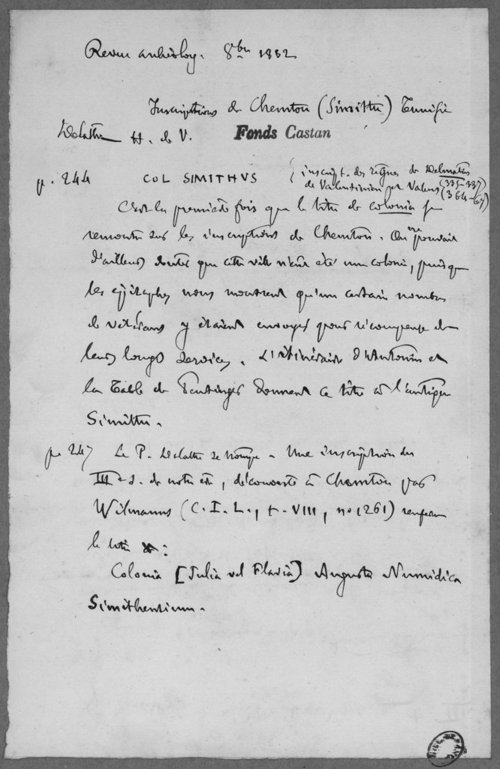 Revue archéolog. 8bre 1882
Inscriptions de Chemtou (Simittu) Tunisie
Delattre H. de V. Fonds Castan
p. 244 COL SIMITHVS (inscript. des règnes de Delmatius (335-337)
de Valentinien et Valens (364-67)
C'est la première fois que le titre de colonia se
rencontre sur les inscriptions de Chemtou. On ne pouvait
d'ailleurs douter que cette ville n'eût été une colonie, puisque
les épitaphes nous montrent qu'un certain nombre
de vétérans y étaient envoyés pour récompense de
leurs longs services. L'itinéraire d'Antonin et
la Table de Peutinger donnent ce titre à l'antique
Simittu.
p. 247 Le P. Delattre se trompe. Une inscription du
III e s. de notre ère, découverte à Chemtou par
Wilmanns (C. I. L., t. VIII, no 1261) renferme
le titre :
Colonia [Julia vel Flavia] Augusta Numidica
Simithensium.